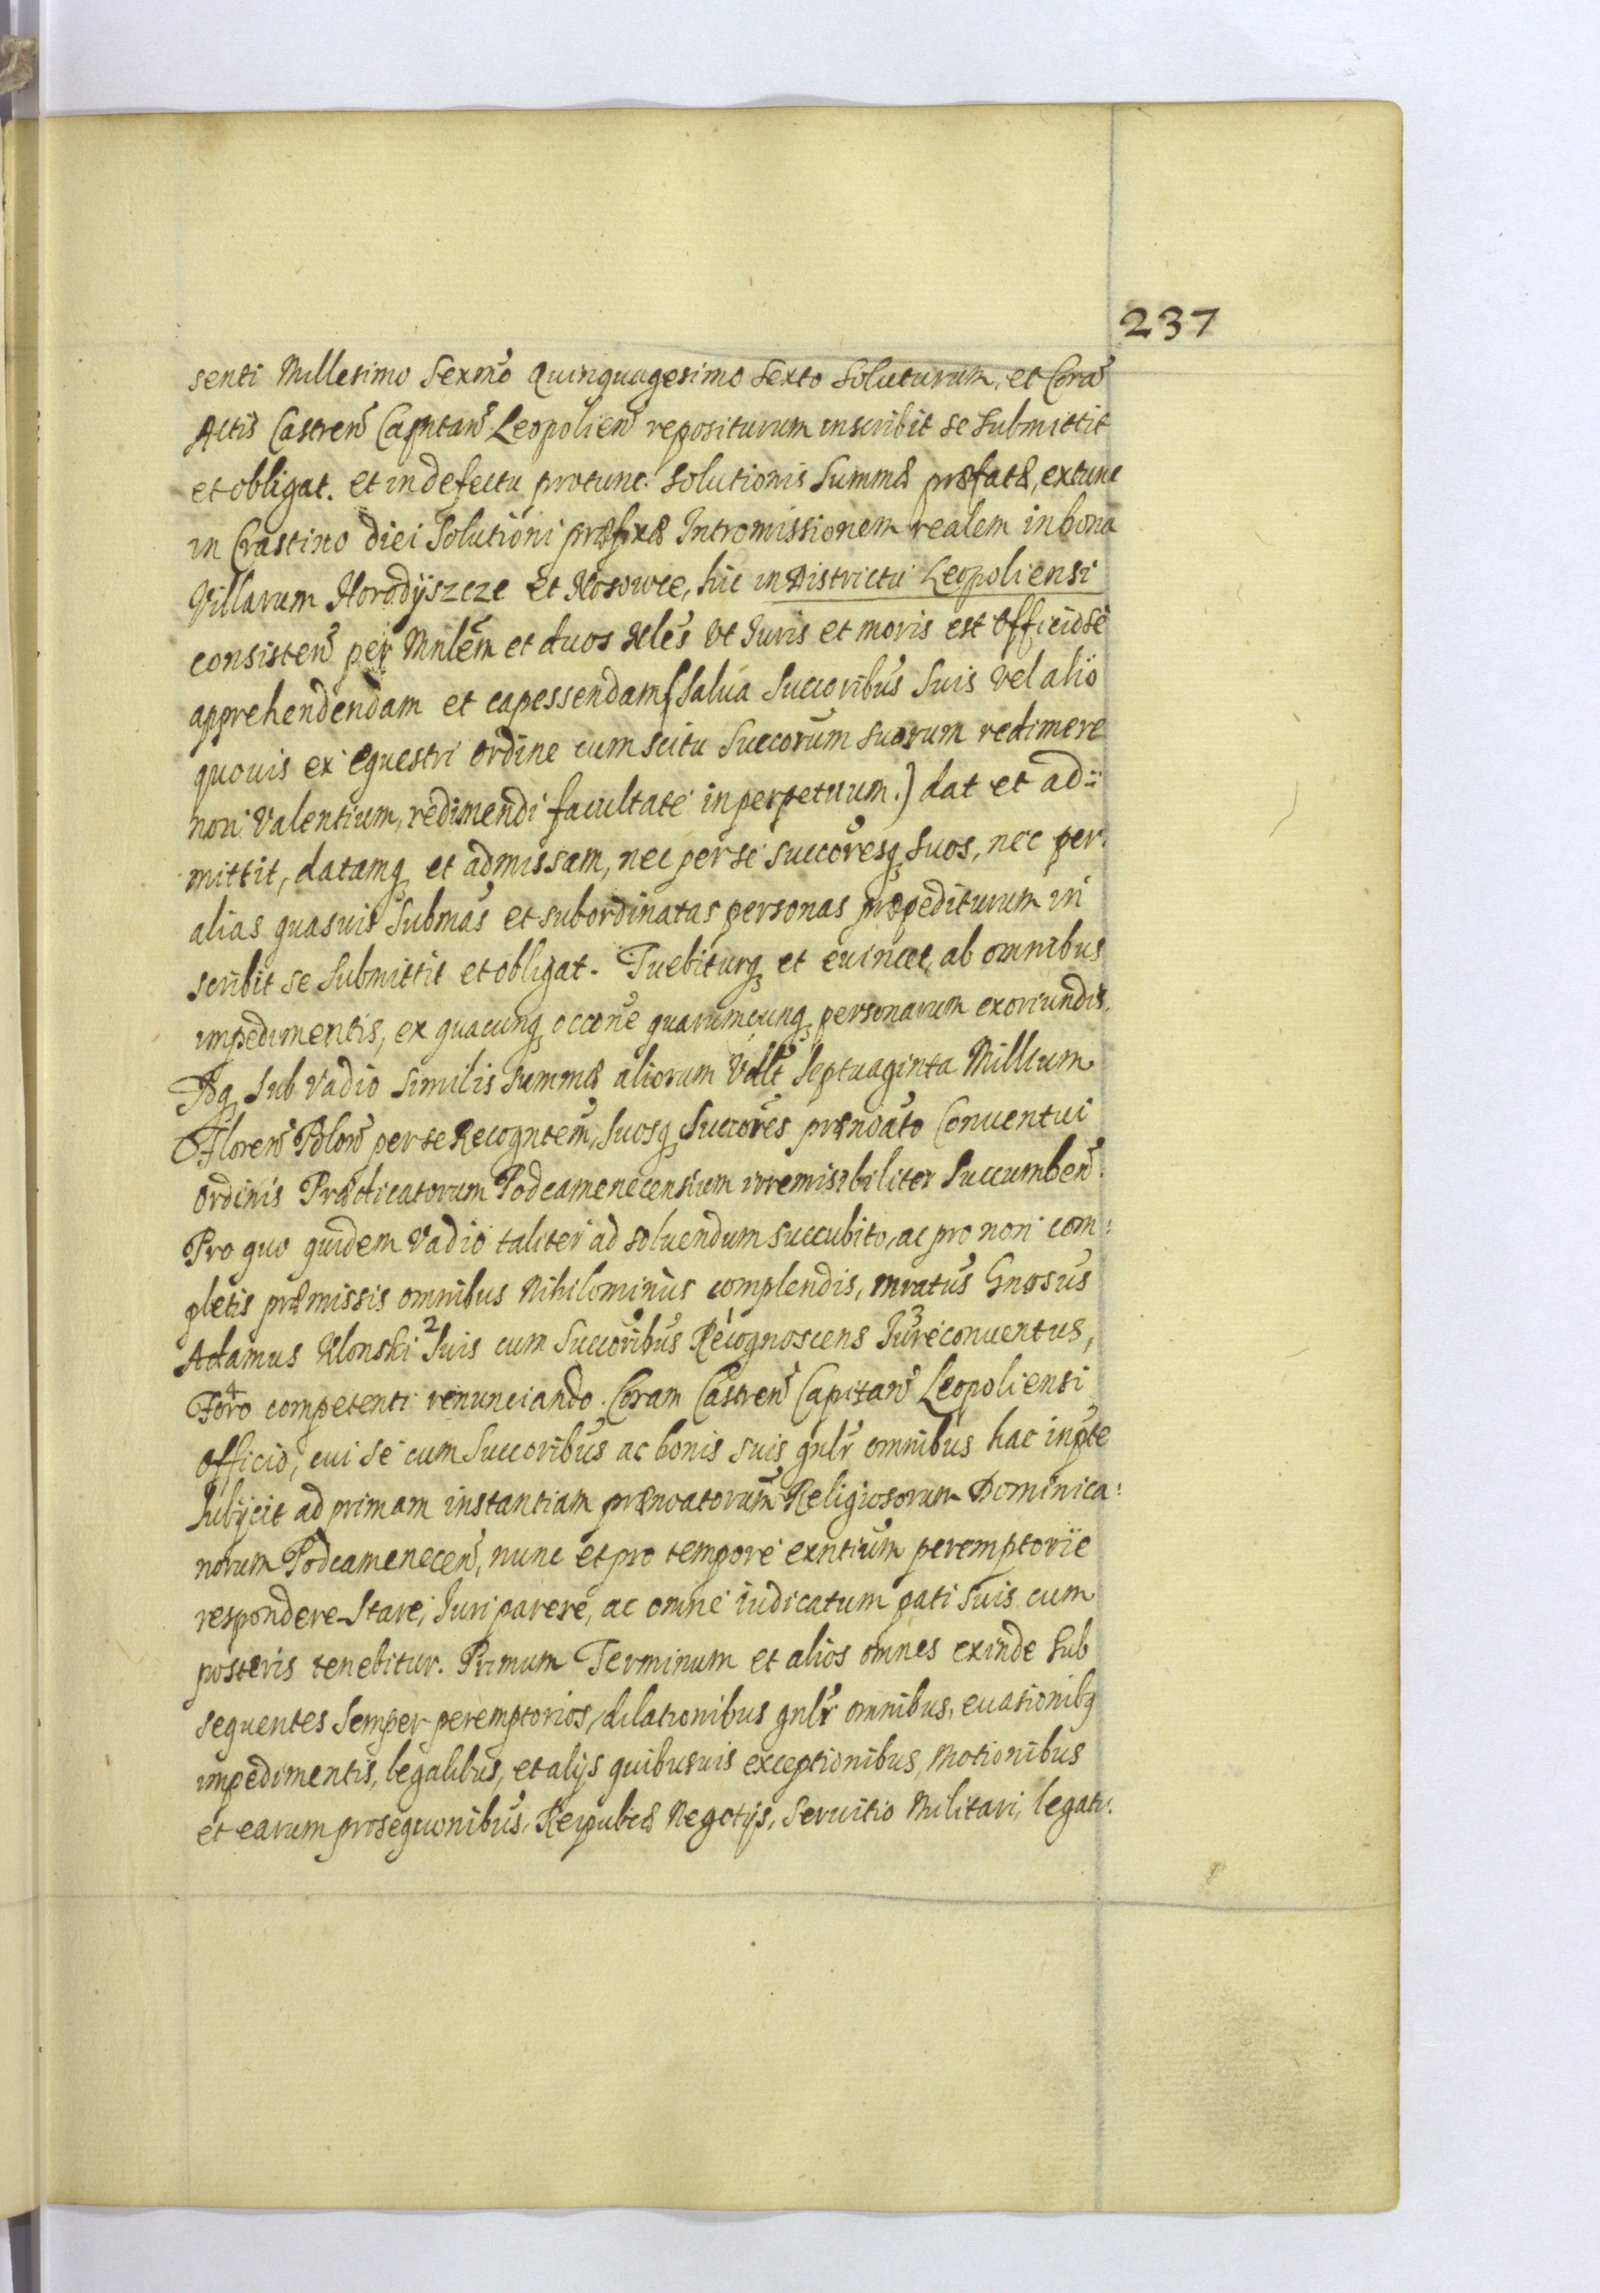 237
senti Millesimo Sexmo Quinquagesimo Sexto Soluturum, et Cora
Actis Castren Capitan Leopolien repositurum inscribit se Submittit
et obligat. et in defectu protunc. solutionis Summæ præfatæ, extunc
in Crastino diei Solutioni præfixæ Intromissionem realem in bona
Villarum Horodÿszcze et Kosowce, hic in districtu Leopoliensi
consisten per Mnlem et duos Nles Vt Iuris et moris est officiose
apprehendendam et capessendam (Salua Succoribus Suis Vel alio
quouis ex equestri ordine cum scitu Succorum suorum redimere
non Valentium, redimendi facultate in perpetuum.) dat et ad:
mittit, datamq et admissam, nec per se succoresq suos, nec per
alias quasuis Submas et subordinatas personas præpediturum in
scribit se Submittit et obligat. Tuebiturq et euincet, ab omnibus
impedimentis, ex quacunq occone quarumcunq personarum exoriundis.
Idq Sub Vadio similis summæ aliorum Vdlt Septuaginta Millium
Floren Polon per se Recogntem, Suosq Succores prænoato Conuentui
ordinis Prædicatorum Podcamenecensium irremisibiliter Succumben.
Pro quo quidem Vadio taliter ad soluendum succubito, ac pro non com:
pletis præmissis omnibus Nihilominus complendis, mratus Gnosus
Adamus Klonski 2 Suis cum Succoribus 1 Recognoscens 3 Iure conuentus,
4 Foro competenti renunciando. Coram Castren Capitan Leopoliensi
officio, cui se cum Succoribus ac bonis suis gnlr omnibus hac in pte
Subÿcit ad primam instantiam prænoatorum Religiosorum Dominica:
norum Podcamenecen, nunc et pro tempore exntium peremptorie
respondere Stare, Iuri parere, ac omne iudicatum pati Suis cum
posteris tenebitur. Primum Terminum et alios omnes exinde Sub
sequentes Semper peremptorios, dilationibus gnlr omnibus, euasionibq
impedimentis, legalibus, et alijs quibusuis exceptionibus, Motionibus
et earum prosequonibus, Reipubcæ Negotijs, Seruitio Militari, legatr.